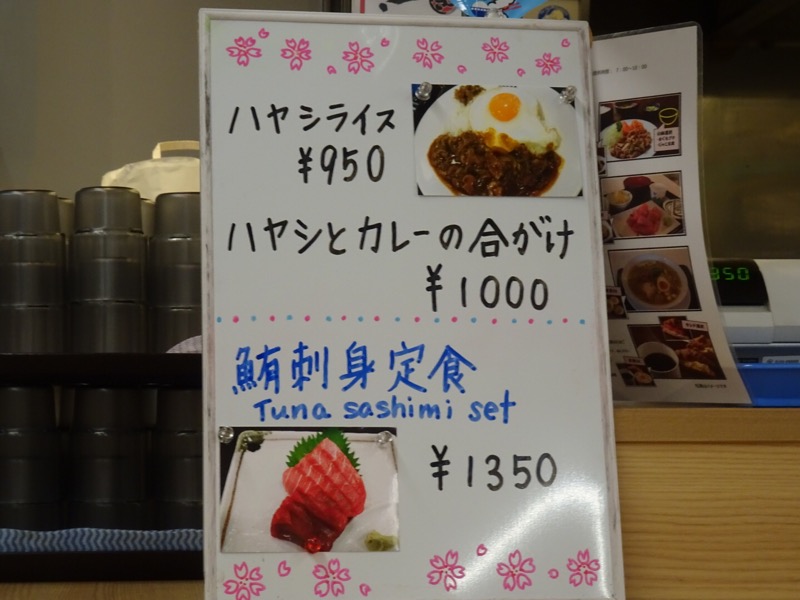 ハヤシライス
¥950
ハヤシとカレーの合がけ
¥1000
鮪刺身定食
Tuna sashimi set
¥1350
350